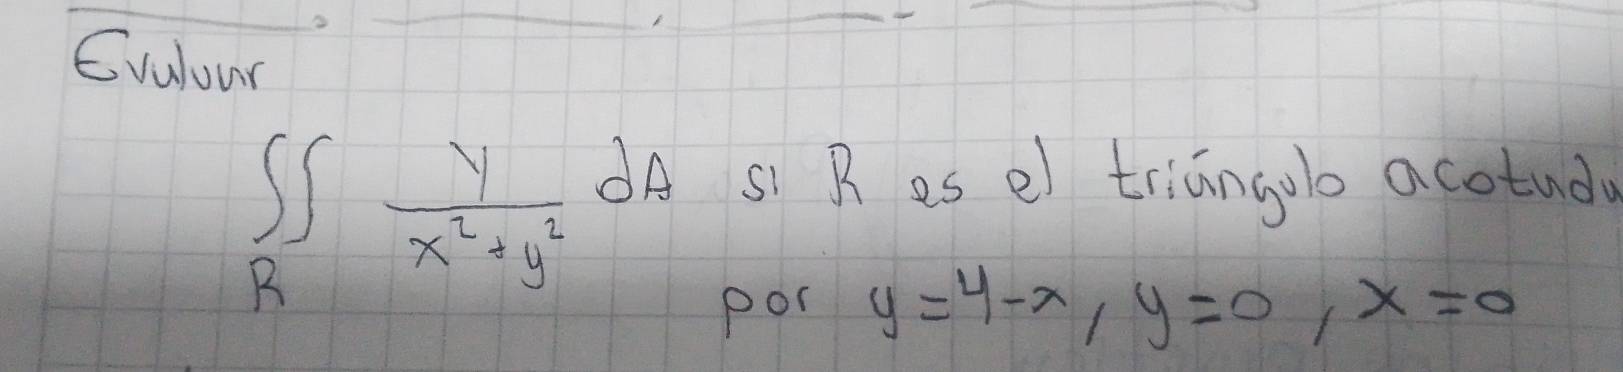 Evaluar
∬_R y/(x²+y²) dA si R es el triángulo acotado
por y=4-x, y=0, x=0